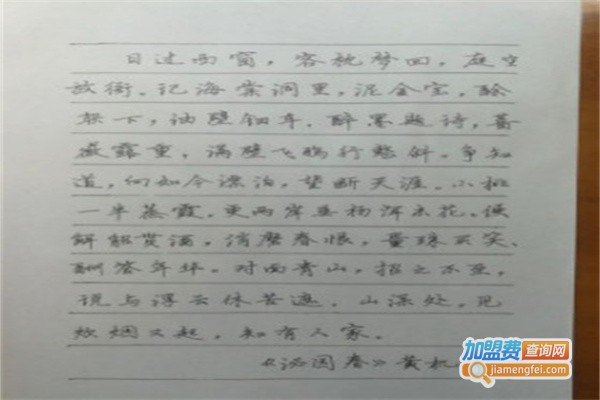 日过西窗，客枕梦回，庭空
放衙。记海棠洞里，泥金宝，酴
架下，油壁钿车。醉墨题诗，蔷
薇露重，满壁飞鸦行整斜。争知
道，向如今漂泊，望断天涯。小桃
一半蒸霞。更两岸垂杨浑未花。便
解貂贳酒，消磨春恨，量珠买笑，
酬答年华。对面青山，招之不至，
说与浮云休苦遮。山深处，见
炊烟又起，知有人家。
《沁园春》黄机
加盟费查询网
jiamengfei.com